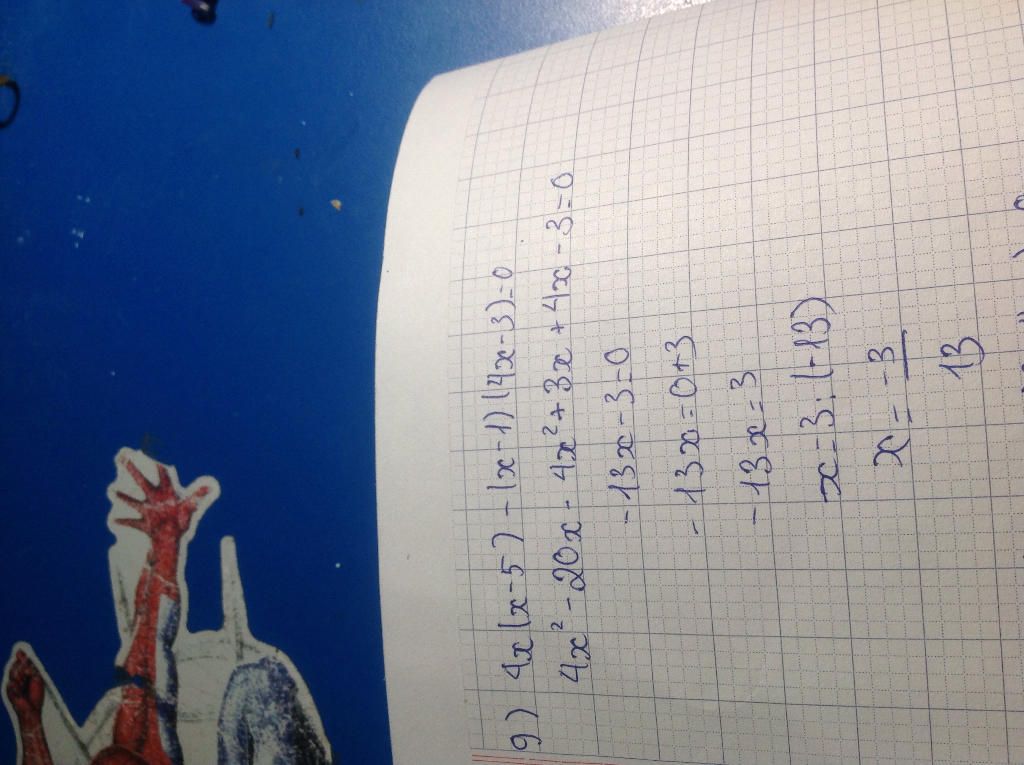 9) 4x(x-5)-(x-1)(4x-3)=0
4x²-20x-4x²+3x+4x-3=0
-13x-3=0
-13x=0+3
-13x=3
x=3:(-13)
x=-3
13